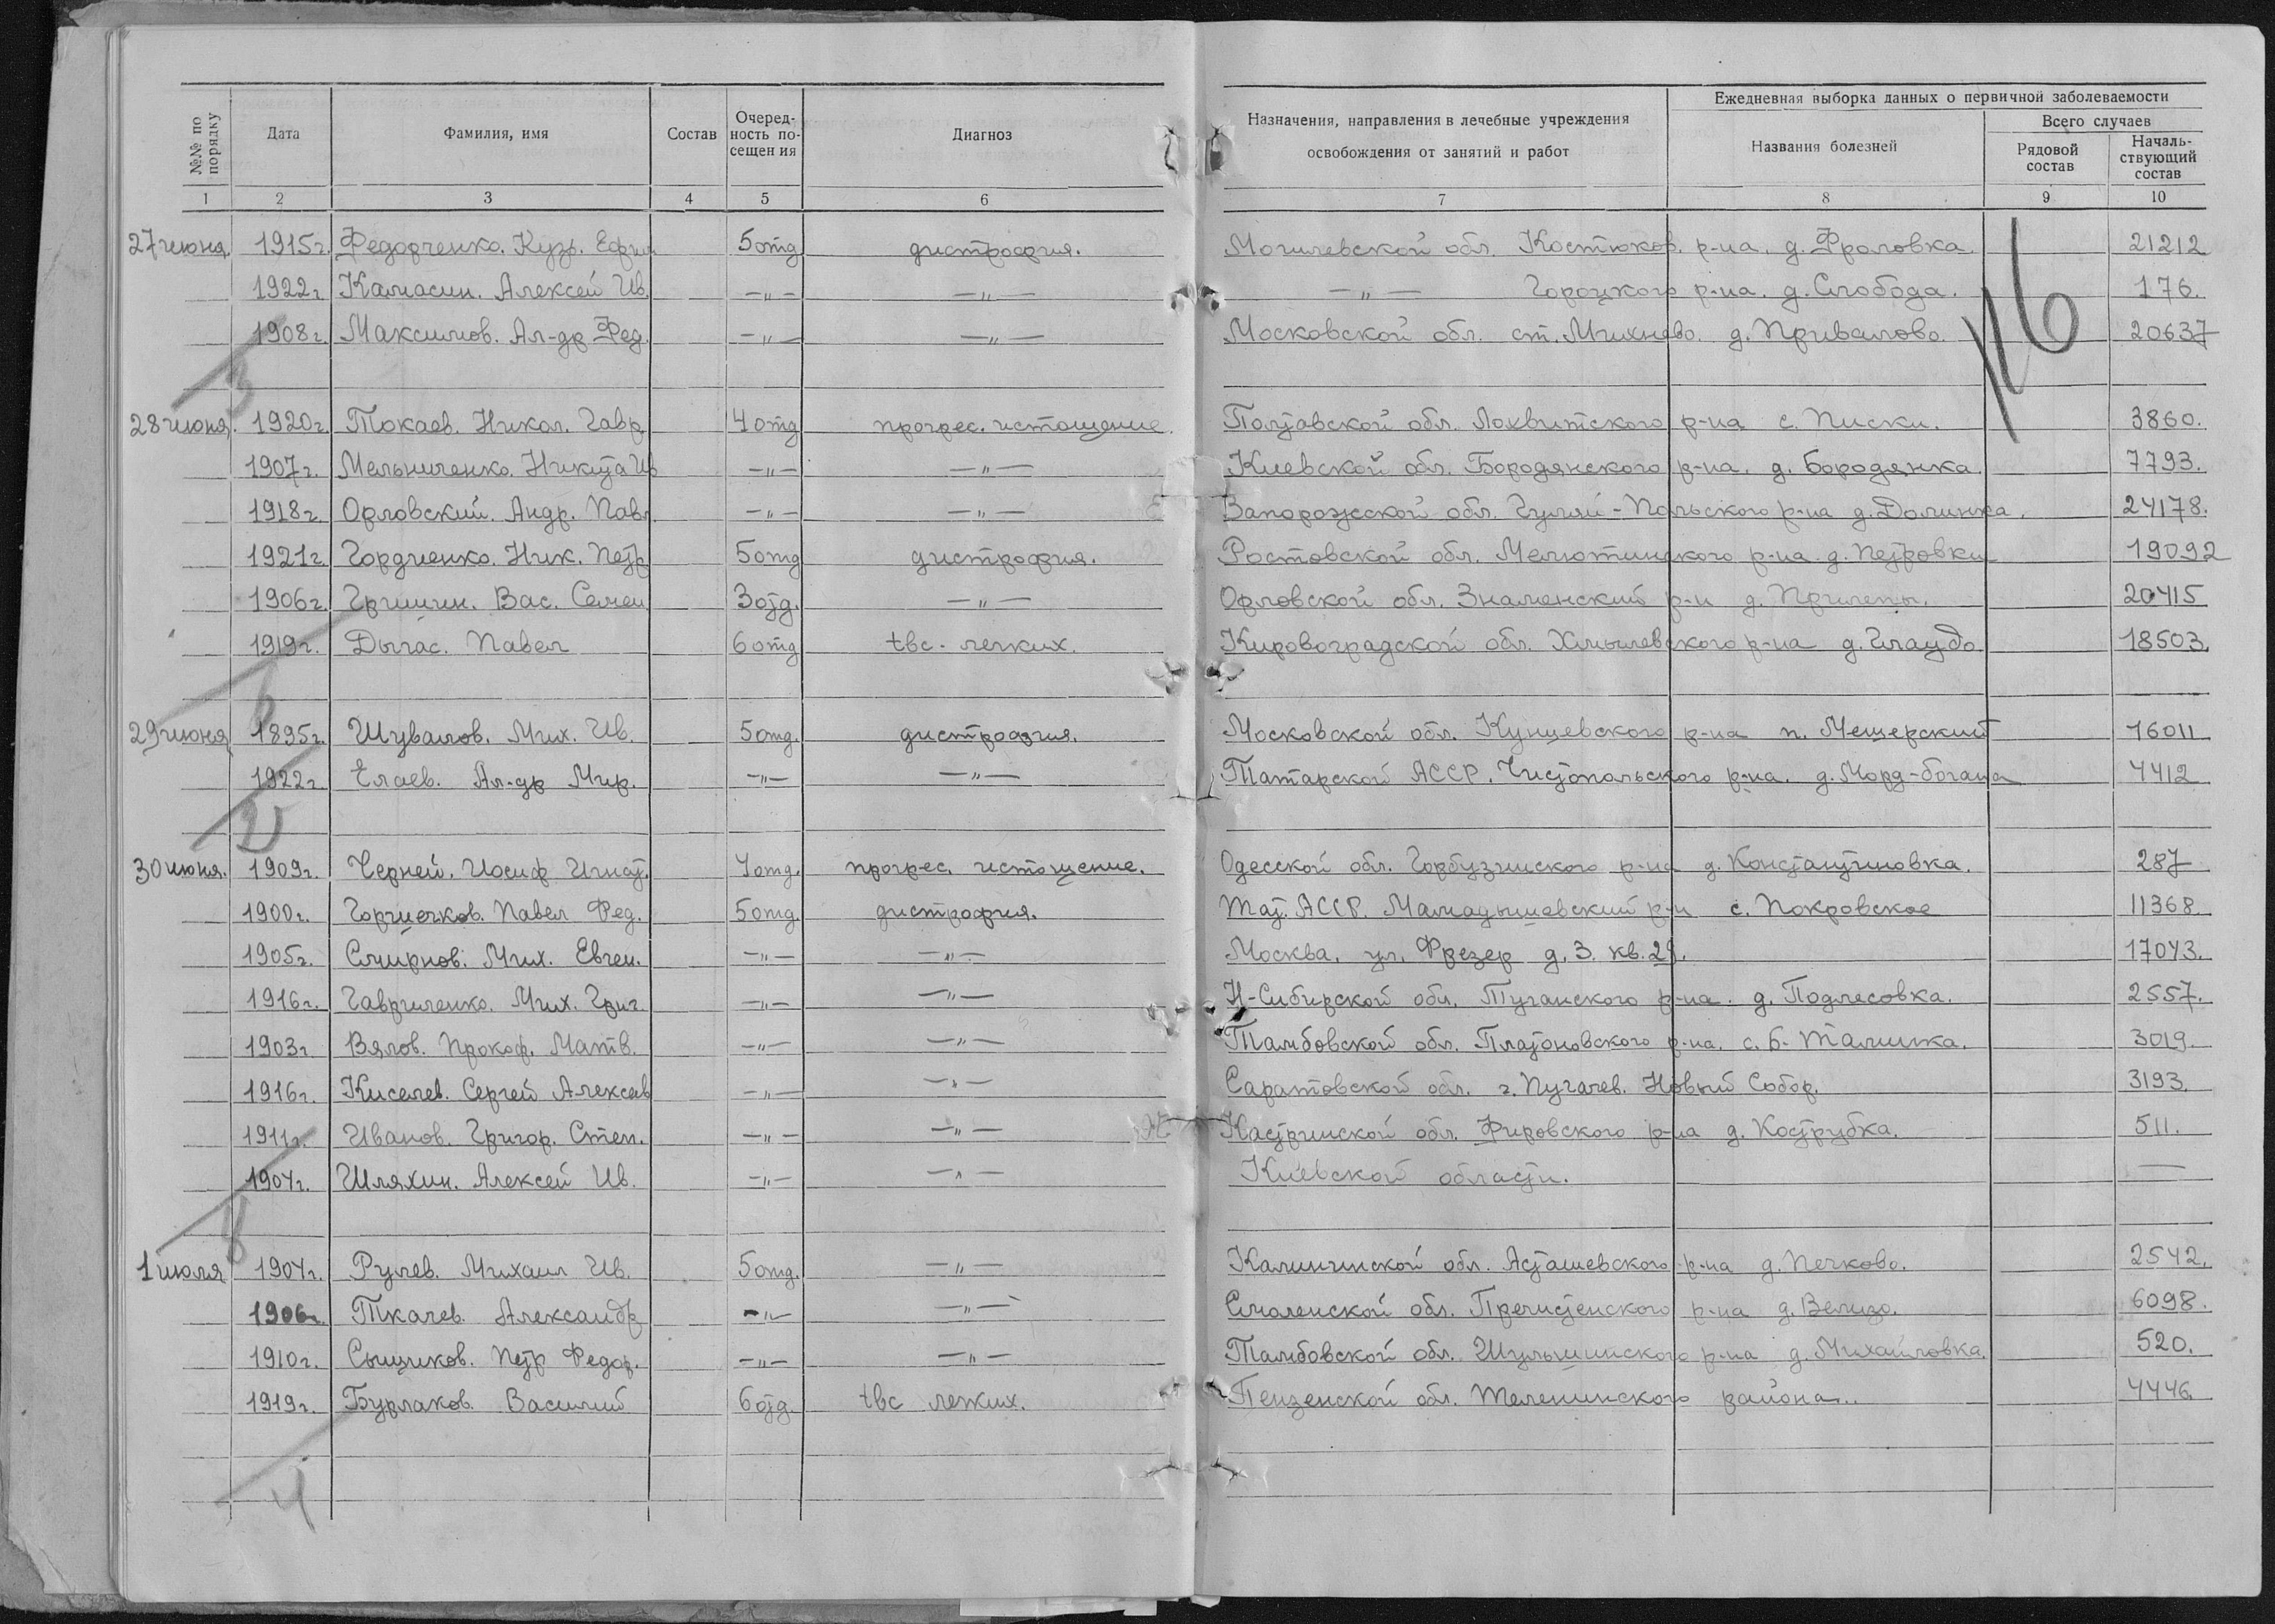 №№ по порядку | Дата | Фамилия, имя | Состав | Очередность посещения | Диагноз | Назначения, направления в лечебные учреждения освобождения от занятий и работ | Ежедневная выборка данных о первичной заболеваемости
Названия болезней | Всего случаев
Рядовой состав | Начальствующий состав
1 2 3 4 5 6 7 8 9 10
27 июня 1915г. Федорченко. Кузь. Ефим 5 отд дистрофия. Могилевской обл. Костюков. р-на. д. Фроловка. 21212
1922г. Камасин. Алексей Ив. —„— —„— —„— Гороцкого р-на. д. Слобода. 176.
1908г. Максимов. Ал-др Фед. —„— —„— Московской обл. ст. Михнево. д. Привалово. 20637
3
16
28 июня. 1920г. Токаев. Никол. Гавр. 4 отд прогрес. истощение. Полтавской обл. Лохвитского р-на с. Писки. 3860.
1907г. Мельниченко. Никита Ив —„— —„— Киевской обл. Бородянского р-на. д. Бородянка. 7793.
1918г. Орловский. Андр. Павл. —„— —„— Запорожской обл. Гуляй-Польского р-на д. Долинка. 24178.
1921г Гордиенко. Ник. Петр 5 отд дистрофия. Ростовской обл. Мелютинского р-на д. Петровки 19092
1906г. Гришин. Вас. Семен 3 отд. —„— Орловской обл. Знаменский р-н д. Прилепы. 20415
1919г. Дычас. Павел 6 отд tbc. легких. Кировоградской обл. Хмылевского р-на д. Глаудо. 18503.
6
29 июня 1895г. Шувалов. Мих. Ив. 5 отд. дистрофия. Московской обл. Кунцевского р-на п. Мещерский 16011
1922г. Елаев. Ал-др Мир. —„— —„— Татарской АССР. Чистопольского р-на. д. Морд-богана 4412
2
30 июня. 1909г. Черней. Иосиф Игнат. 4 отд. прогрес. истощение. Одесской обл. Горбузинского р-на д. Константиновка. 287
1900г. Горчиечков. Павел Фед. 5 отд. дистрофия. Тат. АССР. Мамадышевский р-н с. Покровское 11368.
1905г. Смирнов. Мих. Евген. —„— —„— Москва. ул. Фрезер д. 3. кв. 29. 17043.
1916г. Гавриленко. Мих. Григ. —„— —„— Н-Сибирской обл. Туганского р-на. д. Подлесовка. 2557.
1903г Вялов. Прокоф. Матв. —„— —„— Тамбовской обл. Платоновского р-на. с. Б. Талинка. 3019.
1916г. Киселев. Сергей Алексеев —„— —„— Саратовской обл. г. Пугачев. Новый Собор. 3193.
1911г. Иванов. Григор. Степ. —„— —„— обл. Фировского р-на д. Кострубка. 511.
1904г. Шляхин. Алексей Ив. —„— —„— Киевской области. —
8
1 июля 1904г. Рулев. Михаил Ив. 5 отд. —„— Калининской обл. Асташевского р-на д. Печково. 2542.
1906г. Ткачев. Александр —„— —„— Смоленской обл. Пречистенского р-на д. Велизо. 6098.
1910г. Сыщиков. Петр Федор. —„— —„— Тамбовской обл. Шульшинского р-на д. Михайловка. 520.
1919г. Бурлаков. Василий 6 отд. tbc легких. Пензенской обл. Телегинского района.. 4446.
4